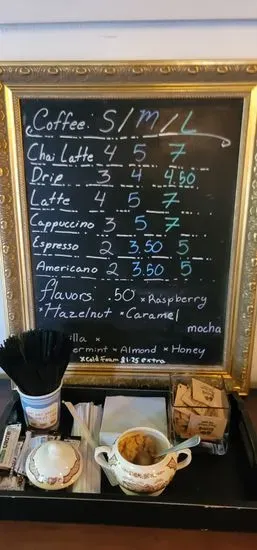 Coffee: S/M/L
Chai Latte 4 5 7
Drip 3 4 4.50
Latte 4 5 7
Cappuccino 3 5 7
Espresso 2 3.50 5
Americano 2 3.50 5
flavors: .50 × Raspberry
× Hazelnut × Caramel
mocha
illa ×
ermint × Almond × Honey
× Cold Foam $1.25 extra